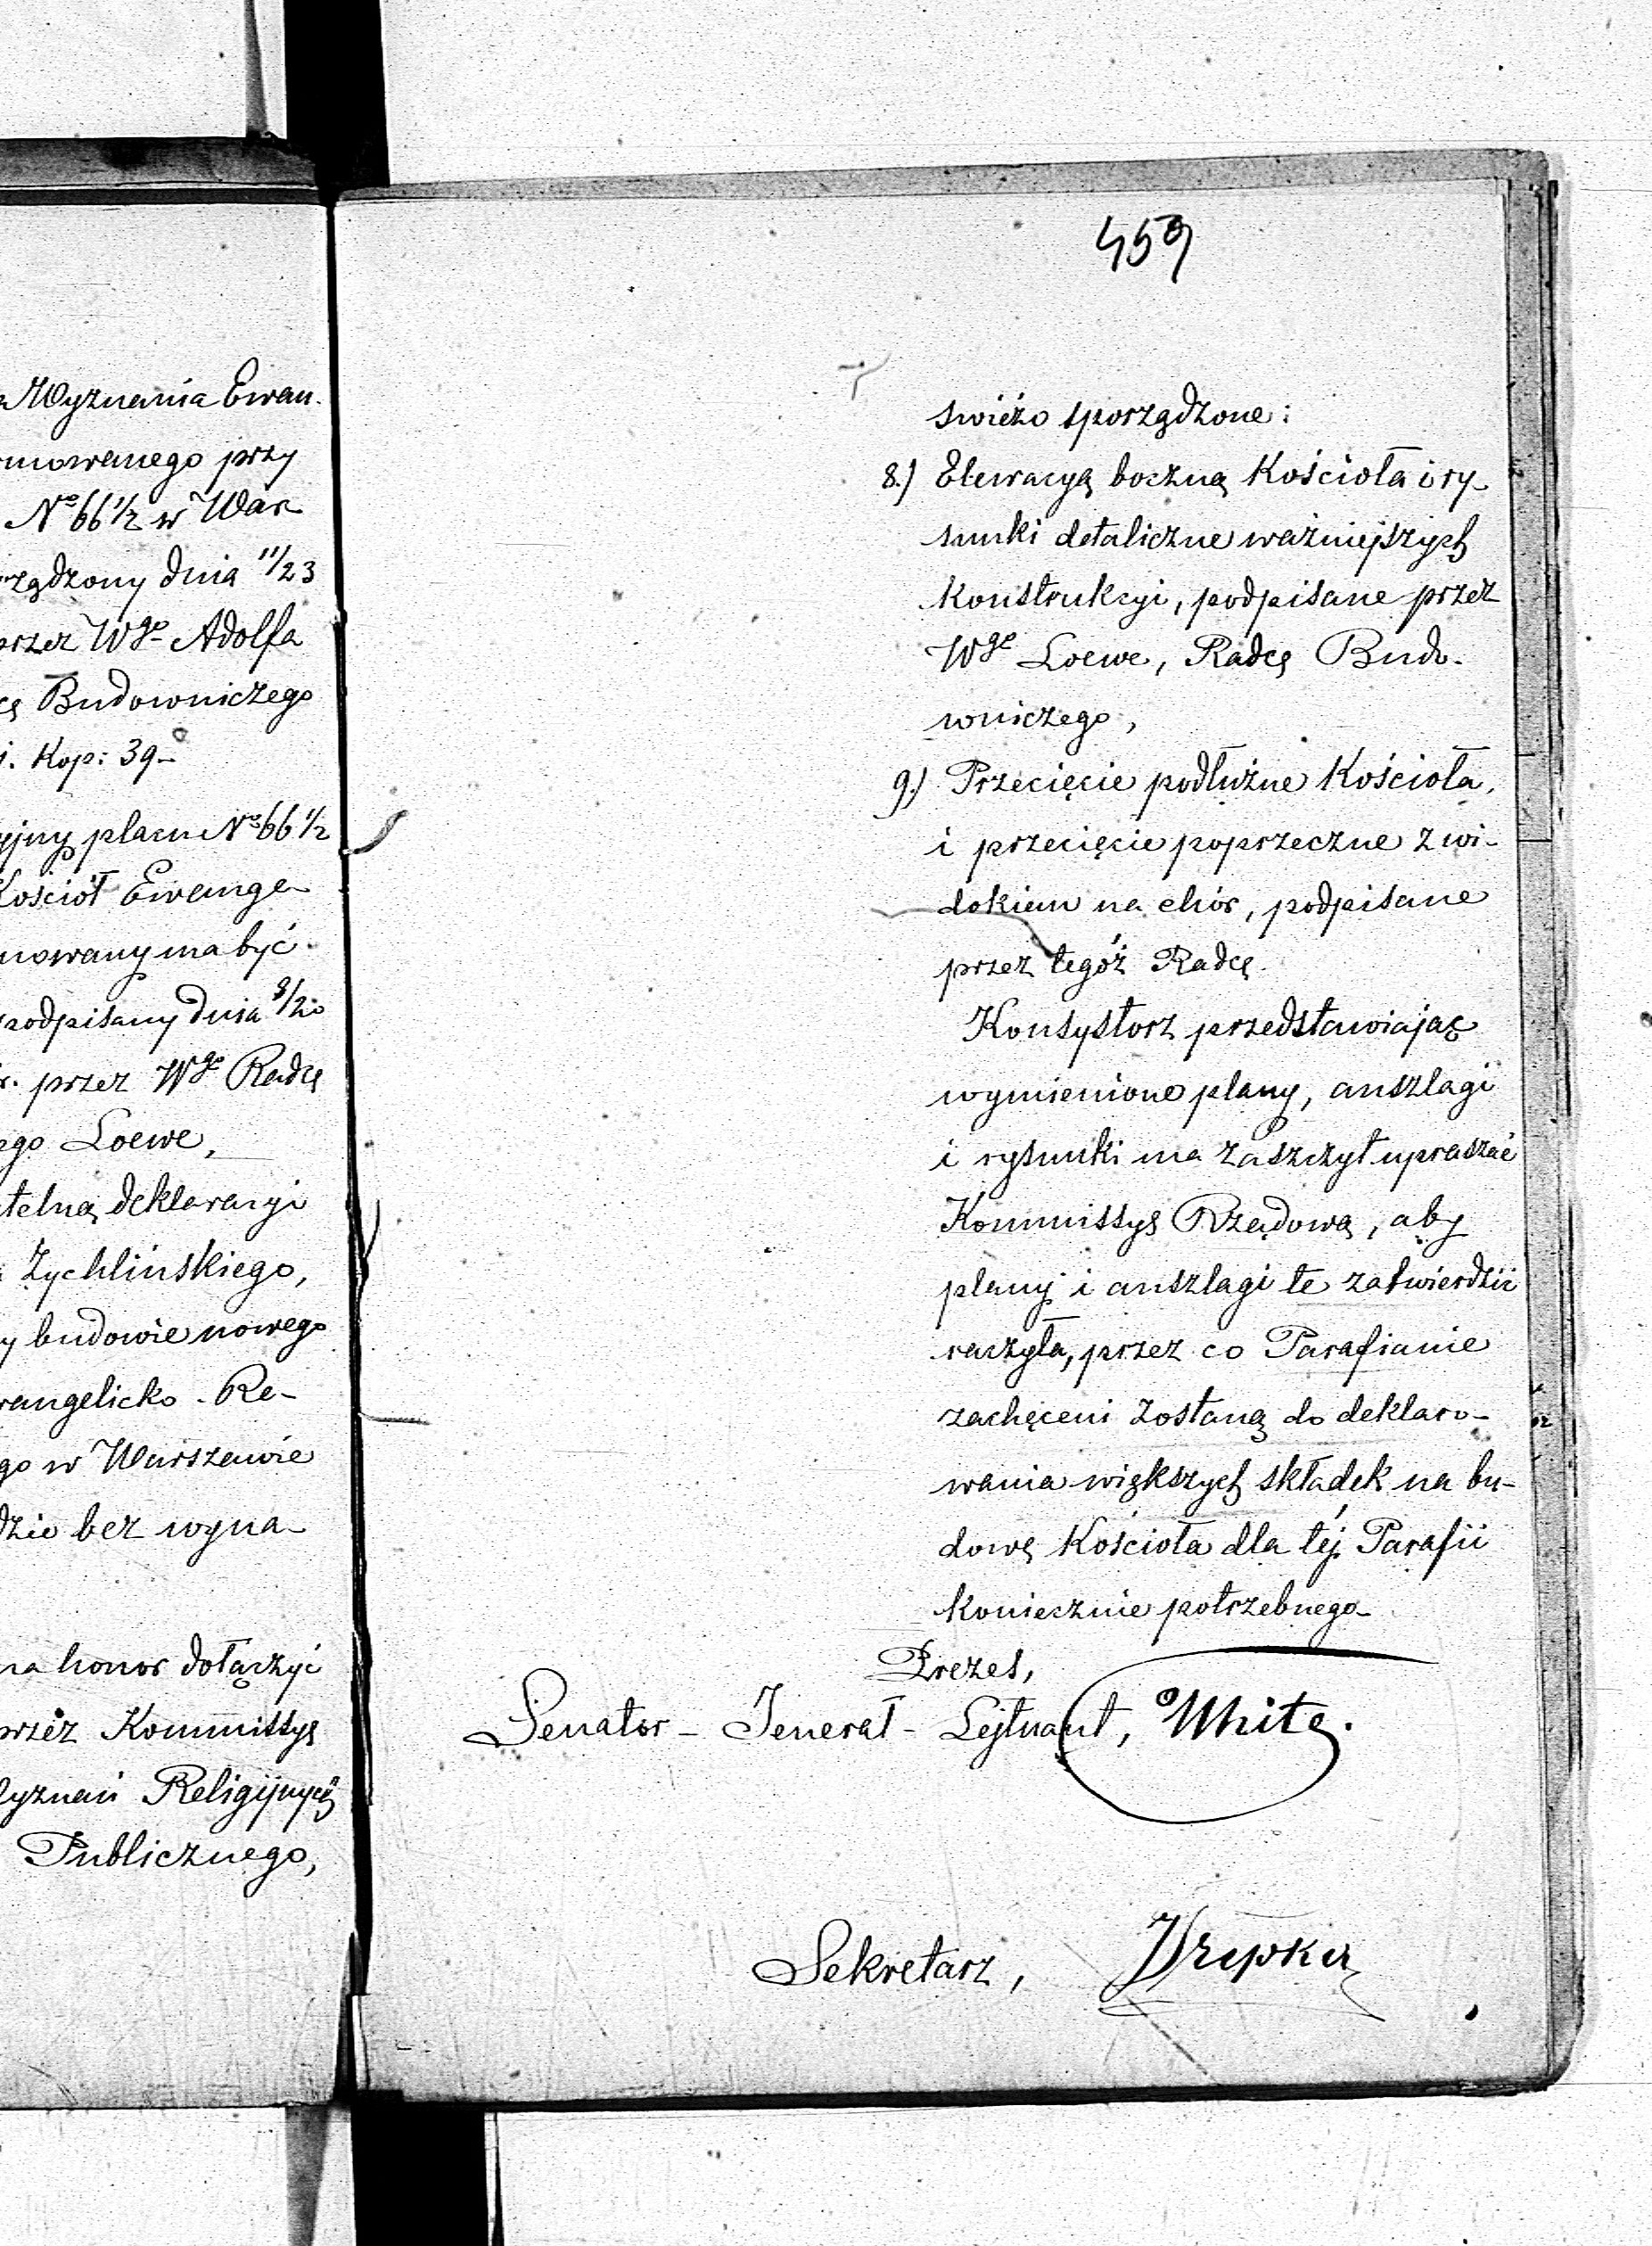 Wyznania Ewan-
mowanego przy
No 66 1/2 w War-
rządzony dnia 11/23
przez Wgo Adolfa
Budowniczego
Kop: 39-
placu No 66 1/2
Kościół Ewange-
mowany ma być
podpisany dnia 8/20
r. przez Wgo Radcę
ego Loewe,
telną deklaracyi
Żychlińskiego,
y budowie nowego
wangelicko-Re-
go w Warszawie
dzie bez wyna-
ma honor dołączyć
przez Kommissyę
Wyznań Religijnych
Publicznego,
459
swieżo sporządzone:
8.) Elewacyą boczną Kościoła i ry-
sunki detaliczne ważniejszych
konstrukcyi, podpisane przez
Wgo Loewe, Radcę Budo-
wniczego,
9.) Przecięcie podłużne Kościoła,
i przecięcie poprzeczne z wi-
dokiem na chór, podpisane
przez tegóż Radcę.
Konsystorz przedstawiając
wymienione plany, anszlagi
i rysunki ma zaszczyt upraszać
Kommissyę Rządową, aby
plany i anszlagi te zatwierdzić
raczyła, przez co Parafianie
zachęceni zostaną do deklaro-
wania większych składek na bu-
dowę Kościoła dla téj Parafii
koniecznie potrzebnego-
Prezes,
Senator-Jenerał-Lejtnant, White.
Sekretarz,